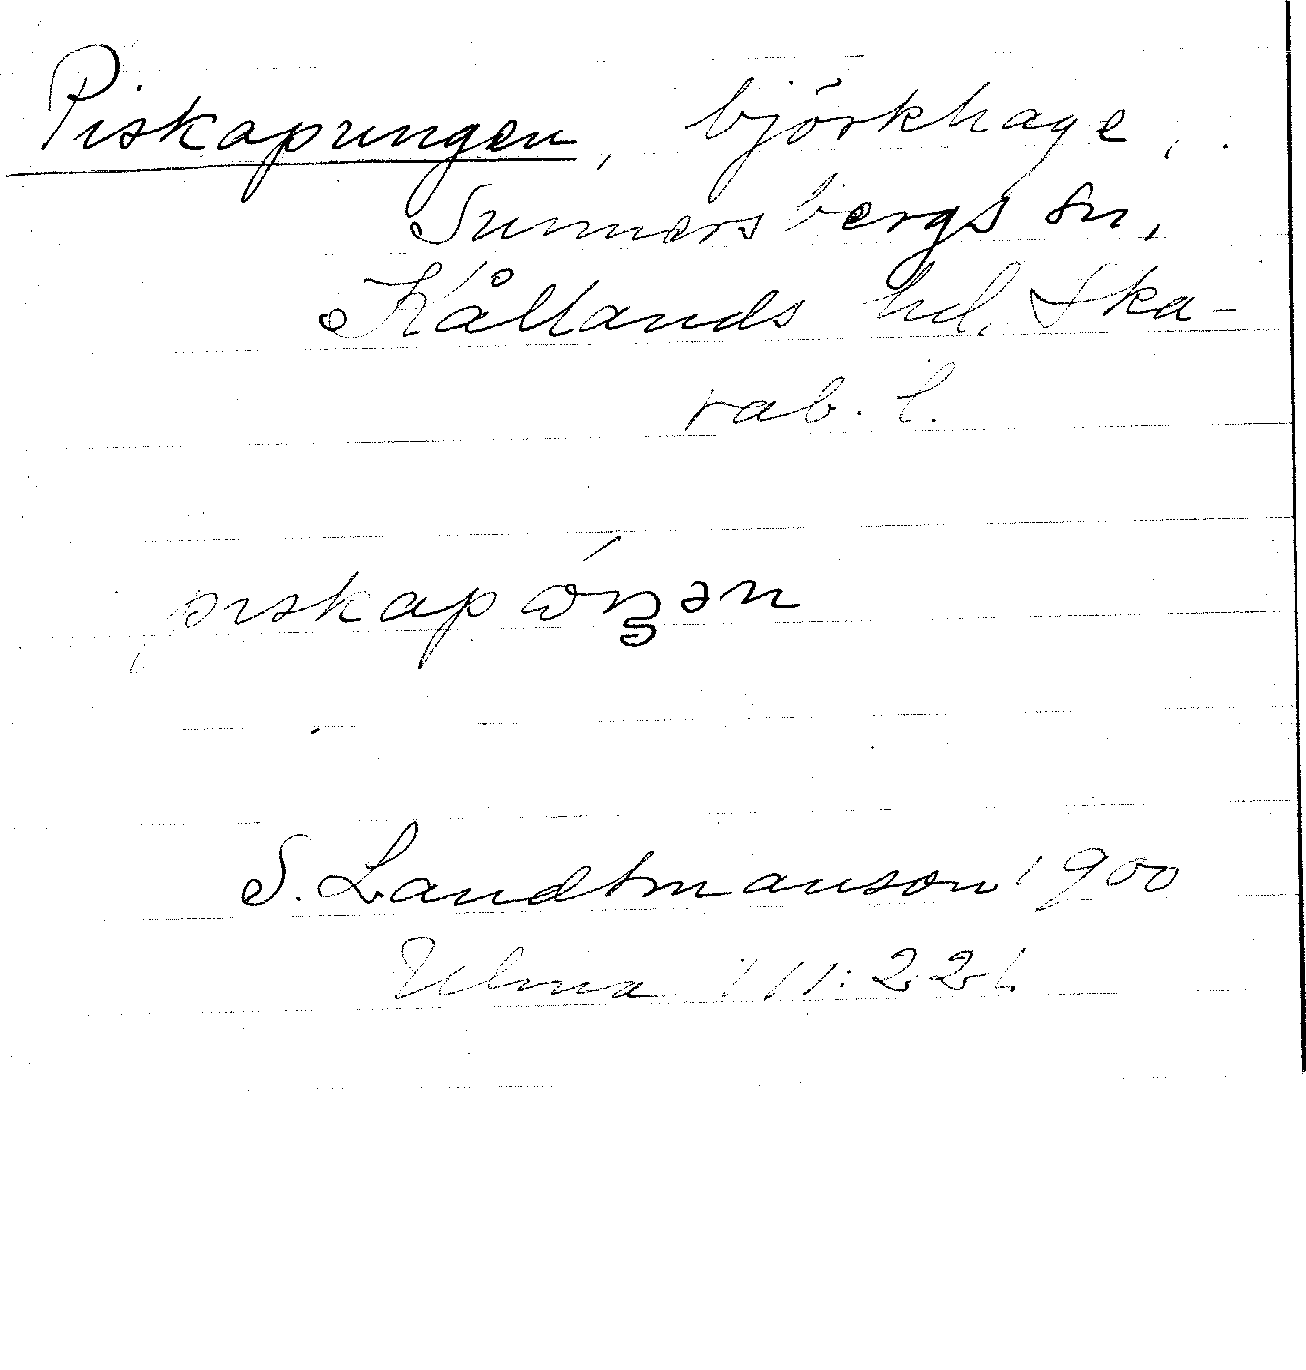 Piskapungen, björkhage,
Sunnersbergs sn,
Kållands hd, Ska-
rab. l.
pıskapώŋən
S. Landtmanson 1900
Ulma 111:221.